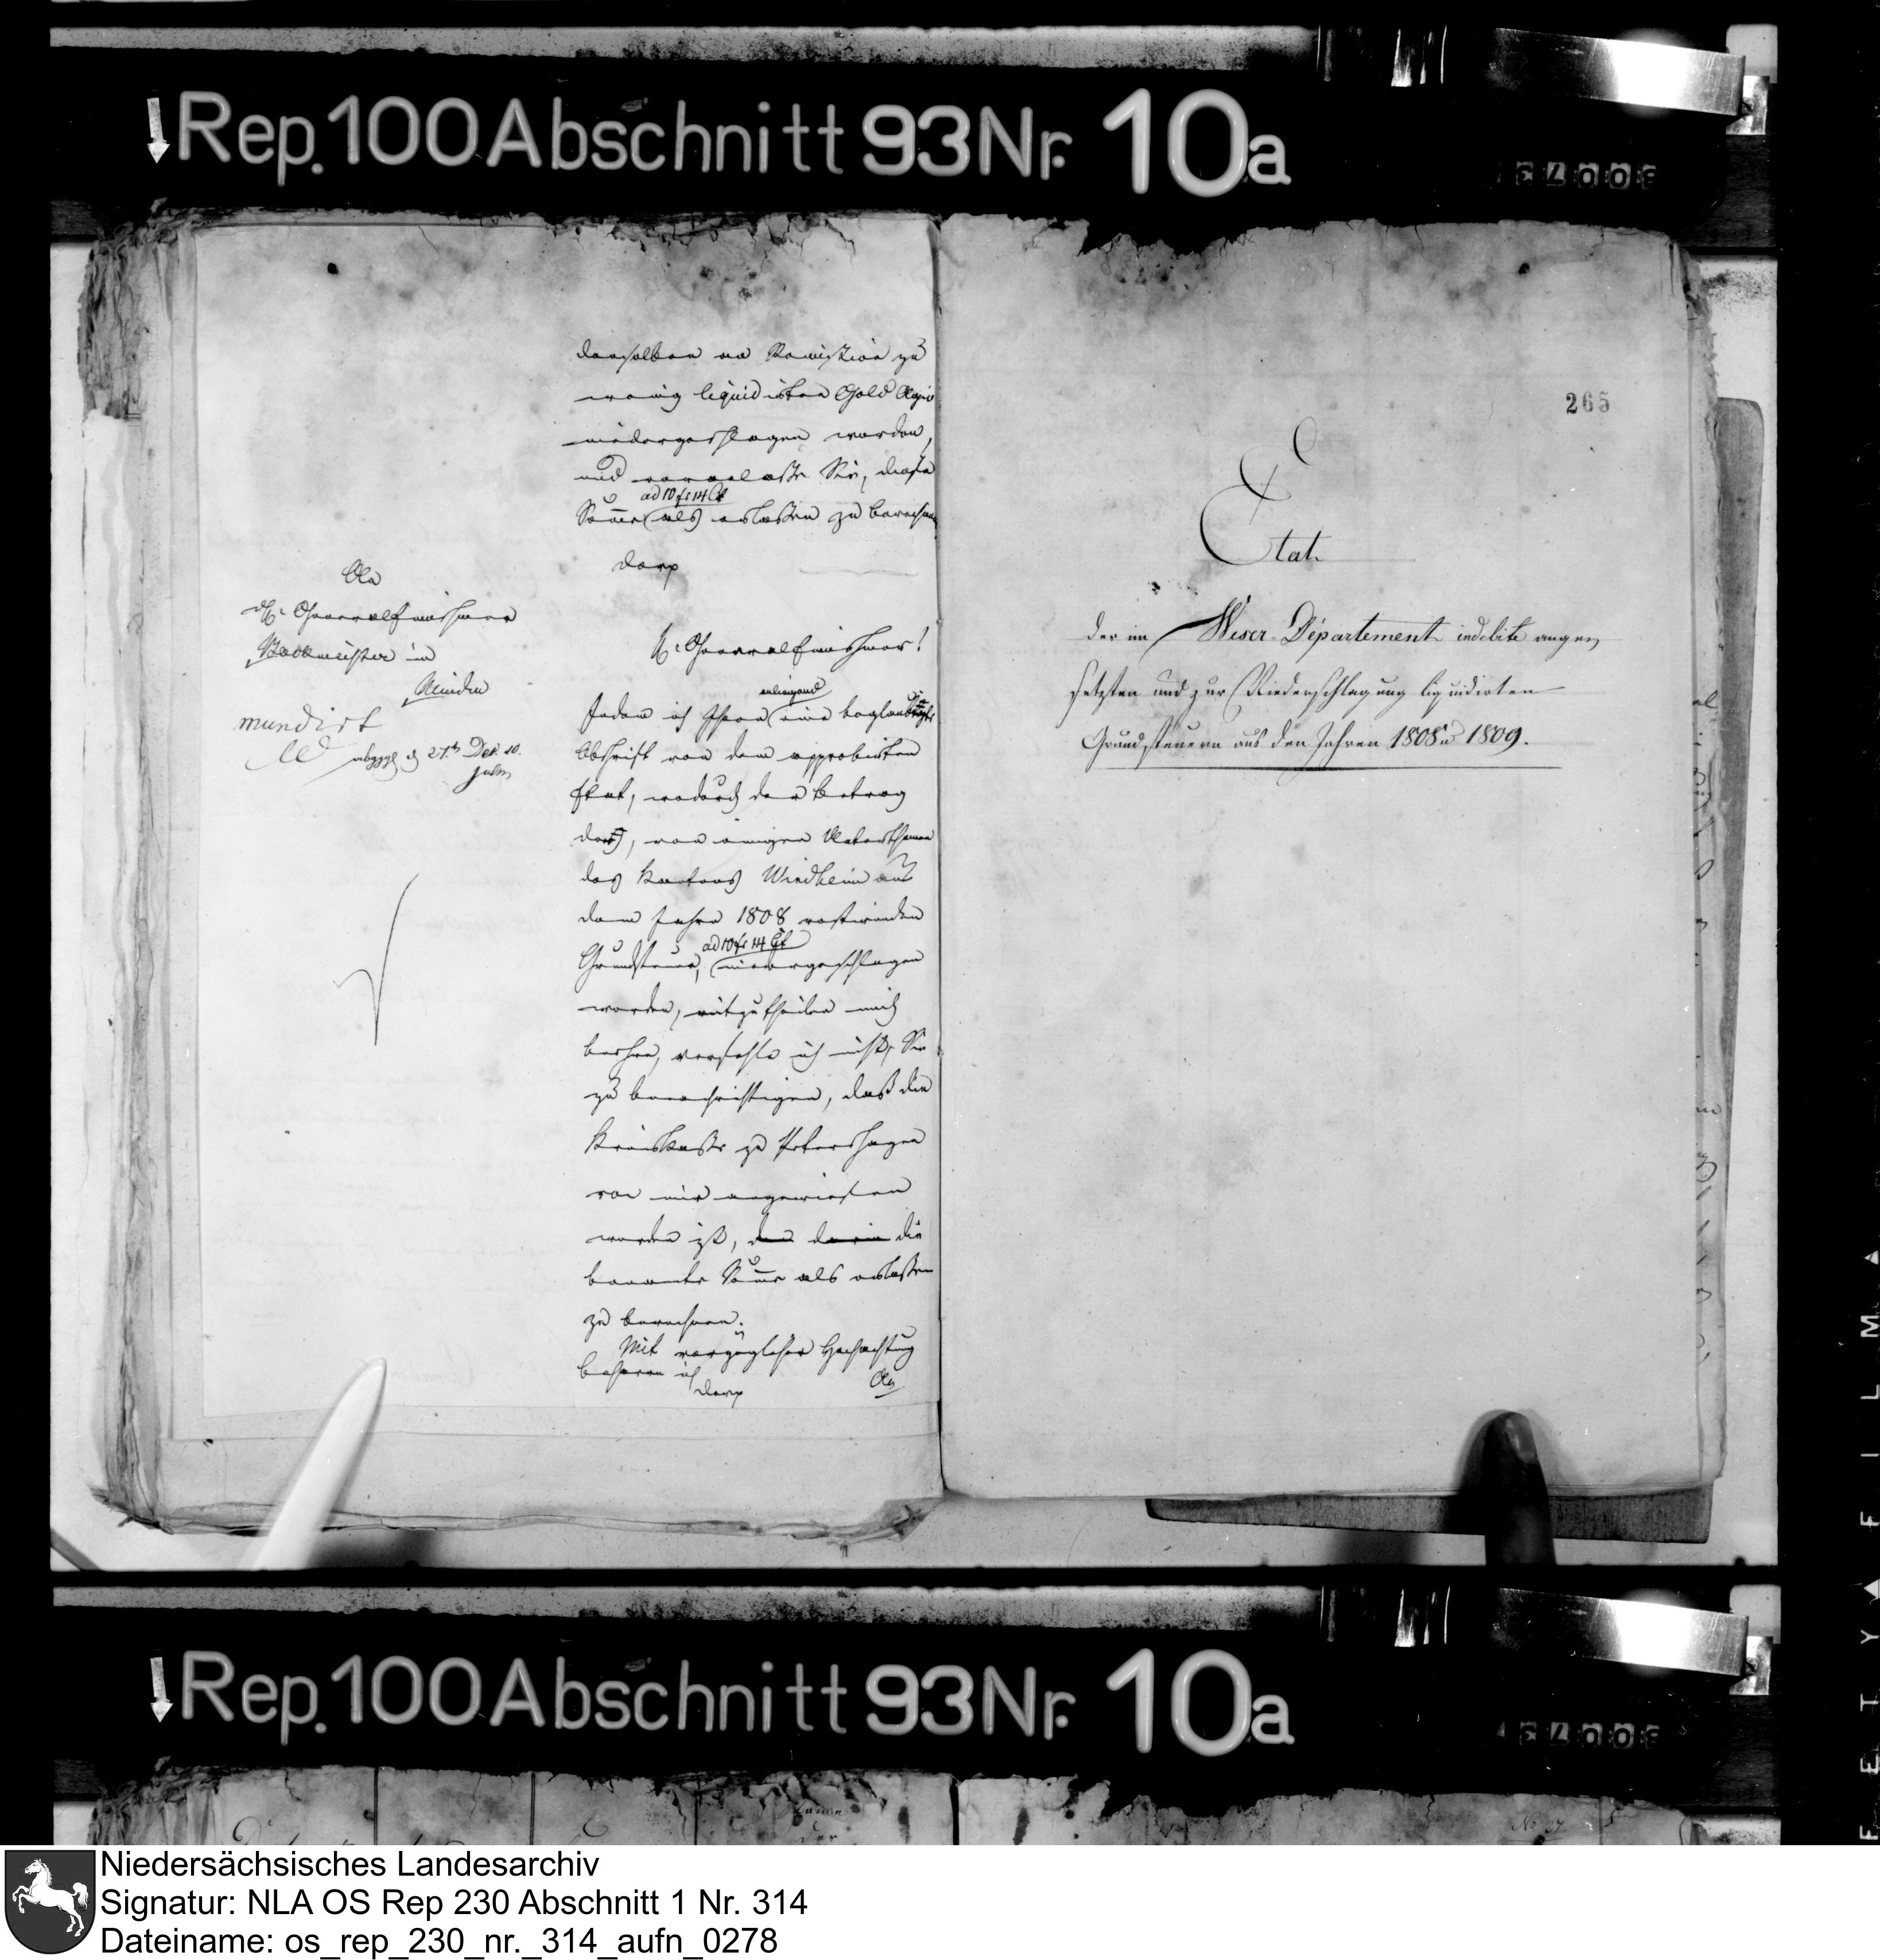 Rep. 100 Abschnitt 93 Nr. 10a
denselben an Remission zu
wenig liquidirten Gold Agio
niedergeschlagen worden,
und veranlasse Sie, diese
ad 10 fr 14 Ct
Summe als erlassen zu berechnen
An
den H. Generaleinnehmer
Backmeister in
Minden
mundirt
abgeg. d 27t Dec. 10.
H. Generaleinnehmer!
anliegend
Indem ich Ihnen eine beglaubigte
Abschrift von dem approbirten
Etat, wodurch der Betrag
der, von einigen Unterthanen
des Kantons Windheim aus
dem Jahre 1808 restirenden
ad 10 fr 14 Ct
Grundsteuer, niedergeschlagen
worden, mitzutheilen mich
beehre, verfehle ich nicht, Sie
zu benachrichtigen, daß die
Kreiskasse zu Petershagen
von mir angewiesen
worden ist, die
benannte Summe als erlassen
zu berechnen.
Mit vorzüglicher Hochachtung
beharre ich
265
Etat
der im Weser-Département indebite ange
setzten und zur Niederschlagung liquidirten
Grundsteuern aus den Jahren 1808 u 1809.
Rep. 100 Abschnitt 93 Nr. 10a
Namen
der
Niedersächsisches Landesarchiv
Signatur: NLA OS Rep 230 Abschnitt 1 Nr. 314
Dateiname: os_rep_230_nr._314_aufn_0278